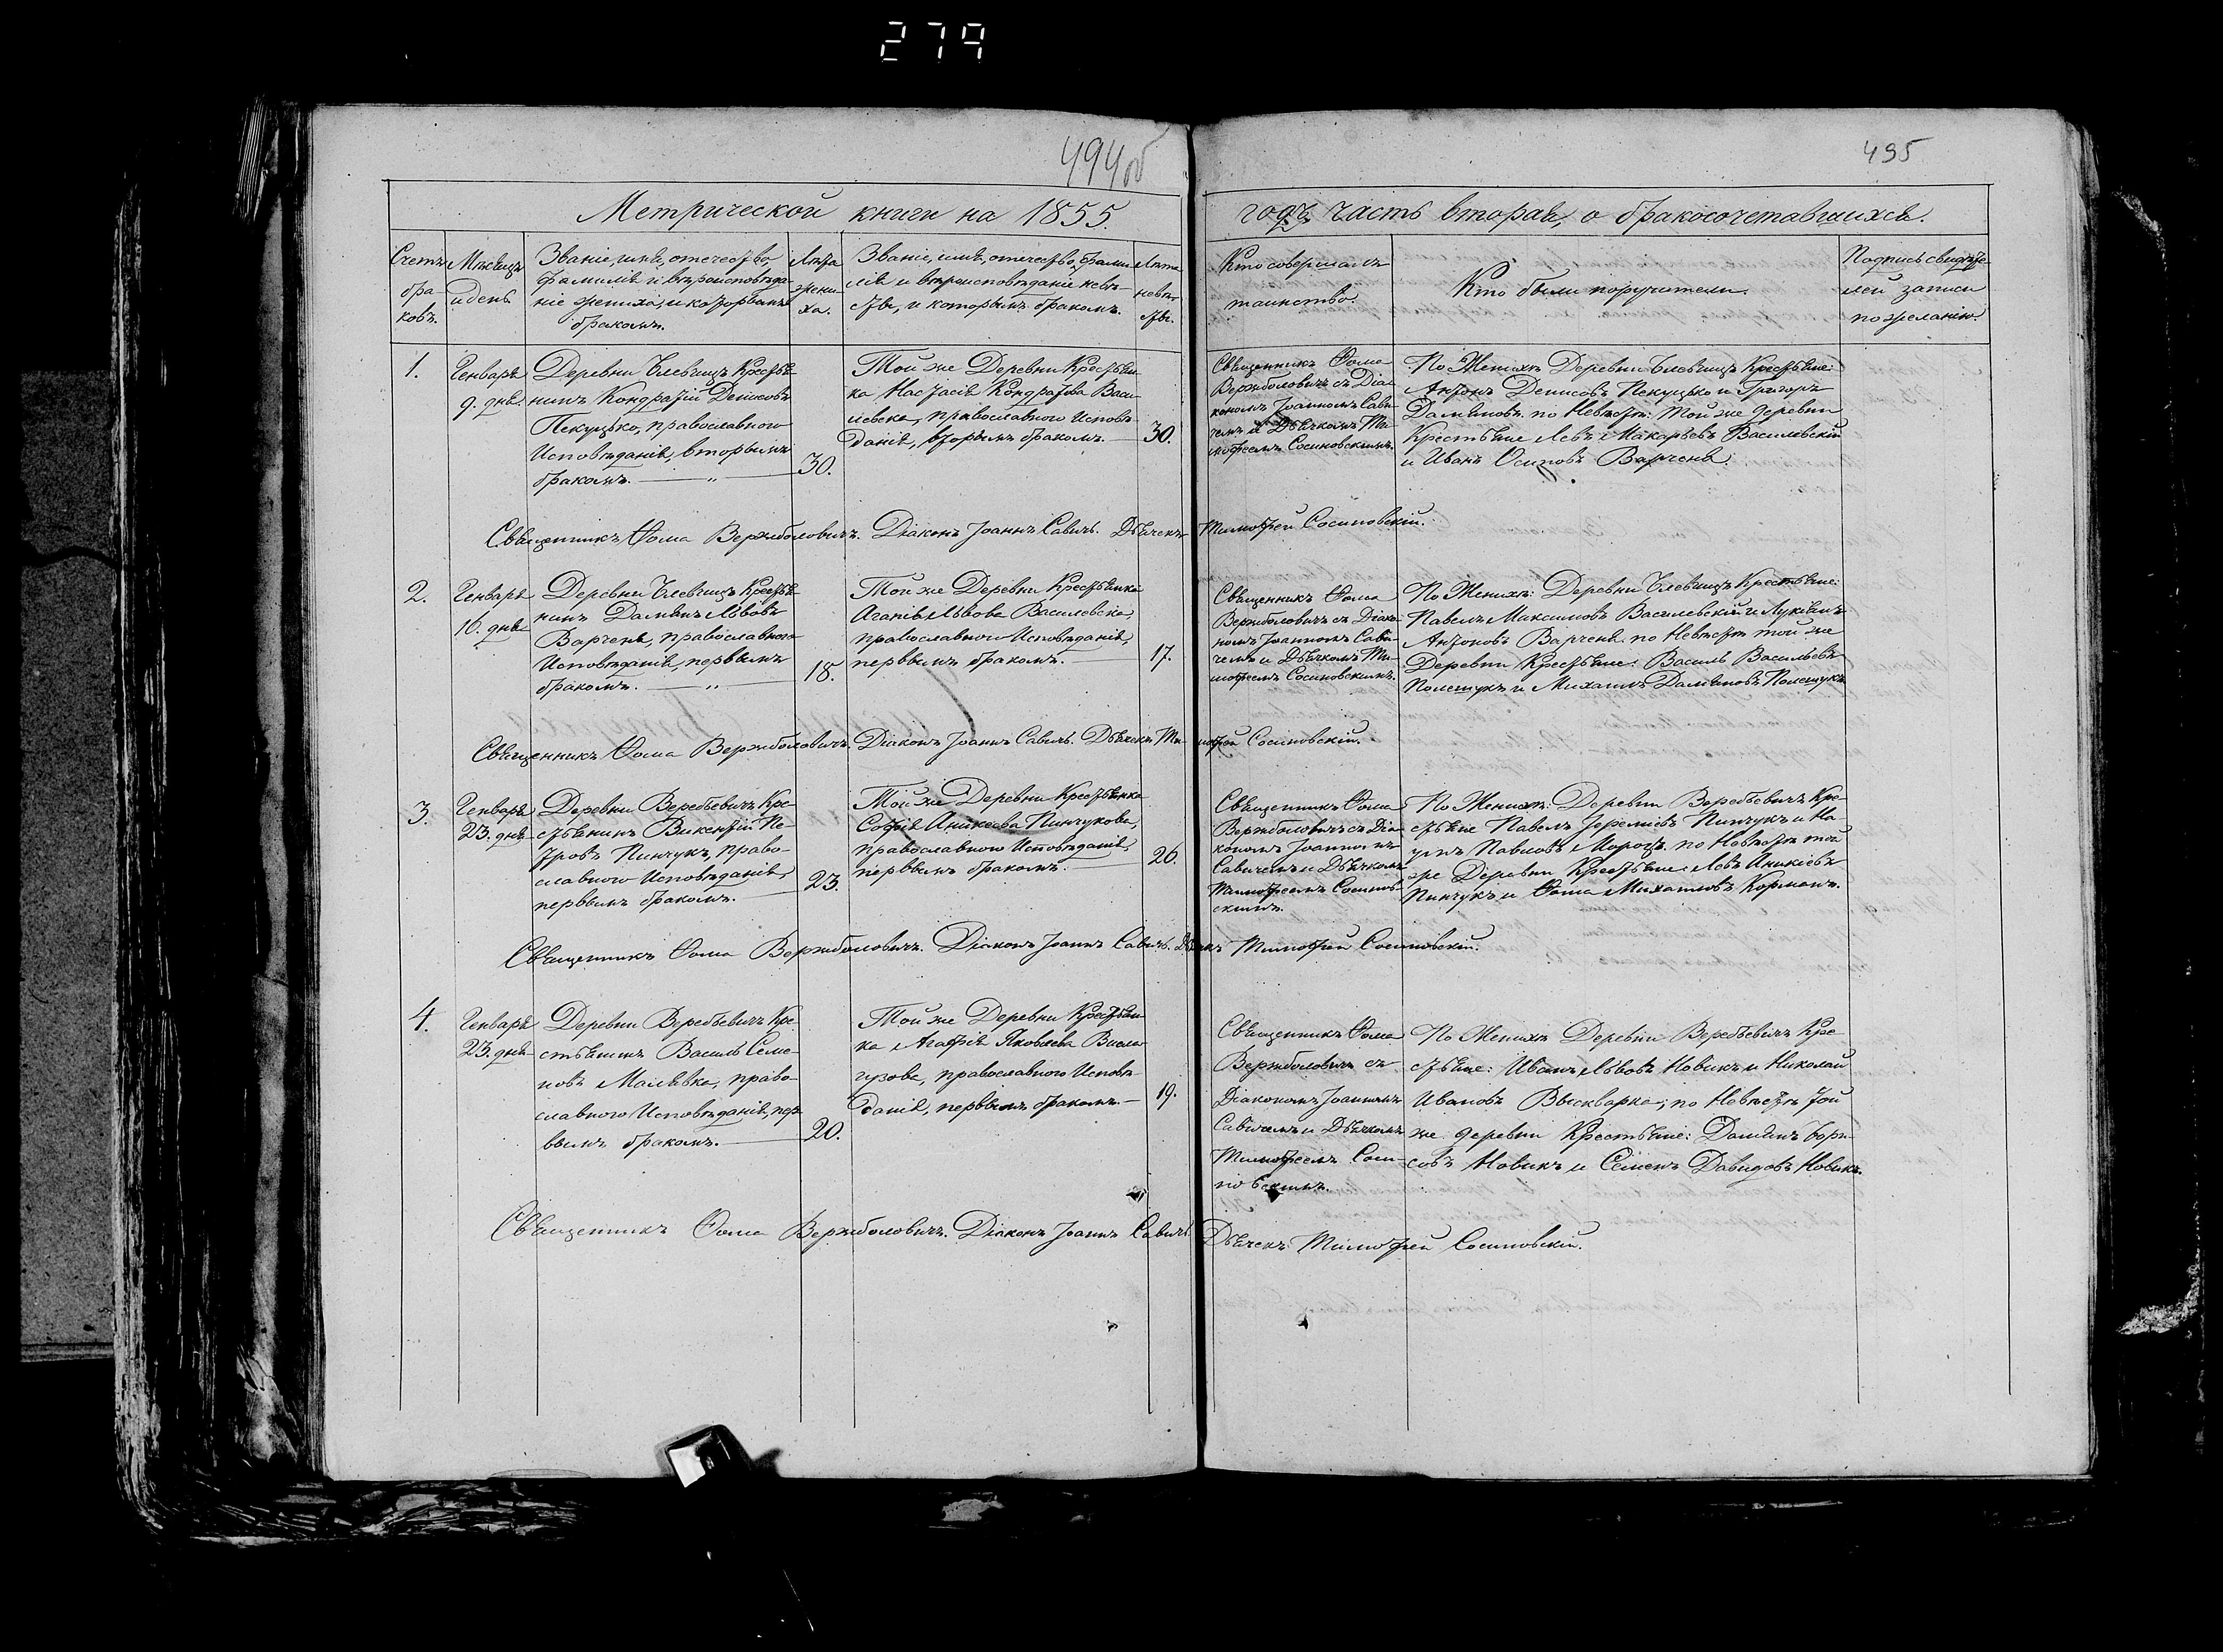 279
494об
495
Метрической книги на 1855.
годъ часть вторая, о бракосочетавшихся.
Счетъ бра-
ковъ.
Мѣсяцъ
и день
Званіе, имя, отечество,
фамилія и вѣроисповѣда-
ніе жениха, и которымъ
бракомъ.
Лѣта
жени-
ха.
Званіе, имя, отечество, фами-
лія и вѣроисповѣданіе невѣ-
сты, и которымъ бракомъ.
Лѣта
невѣ-
сты.
Кто совершалъ
таинство.
Кто были поручители.
Подпись свидѣте-
лей записи
по желанію.
1.
Генваря
9. дня.
Деревни Блевчицъ Крестья
нинъ Кондратій Денисовъ
Пекуцько, православнаго
Исповѣданія, вторымъ
бракомъ. — „ —
30.
Той же Деревни Крестьян
ка Настасія Кондратова Васи
левска, православного Исповѣ
данія, вторымъ бракомъ. —
30.
Священникъ Фома
Вержболовичъ съ Діа
кономъ Іоанномъ Сави
чемъ и Дьячкомъ Ти
мофеемъ Сосиновскимъ.
По Женихѣ Деревни Блевчицъ Крестьяне:
Антонъ Денисовъ Пекуцько и Григоръ
Дамяновъ, по Невѣстѣ: Той же деревни
Крестьяне Левъ Макарьевъ Василевскій
и Иванъ Осиповъ Варченя.
Священникъ Фома Вержболовичъ. Діаконъ Іоаннъ Савичъ. Дьячекъ Тимофей Сосиновскій.
2.
Генваря
16. дня
Деревни Блевчицъ Крестья
нинъ Дамянъ Львовъ
Варченя, православнаго
Исповѣданія, первымъ
бракомъ. — „ —
18.
Той же Деревни Крестьянка
Агапія Львова Василевска,
православного Исповѣданія,
первымъ бракомъ.
17.
Священникъ Фома
Вержболовичъ съ Діако
номъ Іоанномъ Сави
чемъ и Дьячкомъ Ти-
мофеемъ Сосиновскимъ.
По Женихѣ: Деревни Блевчицъ Крестьяне:
Павелъ Максимовъ Василевскій и Лукіянъ
Антоновъ Варченя. по Невѣстѣ той же
Деревни Крестьяне: Василь Васильевъ
Полещукъ и Михаилъ Дамяновъ Полещукъ
Священникъ Фома Вержболовичъ. Діаконъ Іоаннъ Савичъ. Дьячекъ Ти мофей Сосиновскій.
3.
Генваря
23. дня
Деревни Веребьевичъ Кре-
стьянинъ Викентій Пе-
тровъ Пинчукъ, право-
славного Исповѣданія,
первымъ бракомъ. —
23.
Той же Деревни Крестьянка
Софія Аникеева Пинчукова,
православного Исповѣданія,
первымъ бракомъ. —
26.
Священникъ Фома
Вержболовичъ съ Діа
кономъ Іоанномъ
Савичемъ и Дьячкомъ
Тимофеемъ Сосинов-
скимъ.
По Женихѣ: Деревни Веребьевичъ Кре-
стьяне Павелъ Іереміевъ Пинчукъ и На
умъ Павловъ Морозъ. по Невѣстѣ той
же Деревни Крестьяне: Левъ Аникіевъ
Пинчукъ и Фома Михаиловъ Корманъ.
Священникъ Фома Вержболовичъ. Діаконъ Іоаннъ Савичъ. Дьячекъ Тимофей Сосиновскій.
4.
Генваря
23. дня
Деревни Веребьевичъ Кре
стьянинъ Василь Семе-
новъ Малявка, право-
славного Исповѣданія, пер
вымъ бракомъ. —
20.
Той же Деревни Крестьян
ка Агафія Яковлева
православного Исповѣ
данія, первымъ бракомъ. —
19.
Священникъ Фома
Вержболовичъ съ
Діакономъ Іоанномъ
Савичемъ и Дьячкомъ
Тимофеемъ Соси-
новскимъ.
По Женихѣ Деревни Веребьевичъ Кре-
стьяне: Иванъ Львовъ Новикъ и Николай
Ивановъ Выскварка; по Невѣстѣ той
же деревни Крестьяне: Даміянъ Бори-
совъ Новикъ и Семенъ Давидовъ Новикъ.
Священникъ Фома Вержболовичъ. Діаконъ Іоаннъ Савичъ. Дьячекъ Тимофей Сосиновскій.